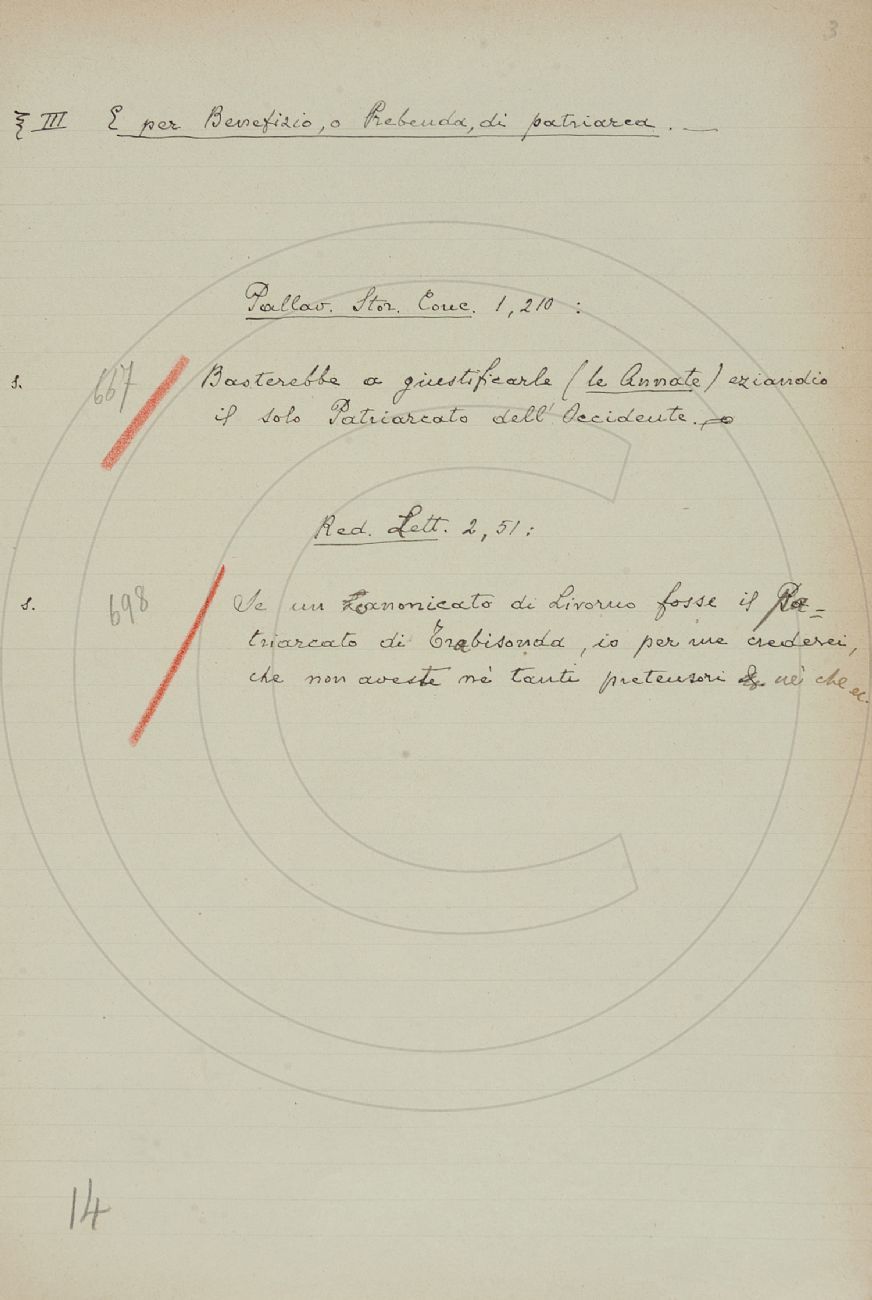 3
§ III E per Benefizio, o Prebenda, di patriarca. —
Pallav. Stor. Conc. 1, 210 :
s. 667 Basterebbe a giustificarle (le Annate) eziandio
il solo Patriarcato dell' Occidente.
Red. Lett. 2, 51 :
s. 698 Se un Canonicato di Livorno fosse il Pa=
triarcato di Trabisonda, io per me crederei,
che non aveste nè tanti pretensori nè che ec.
14